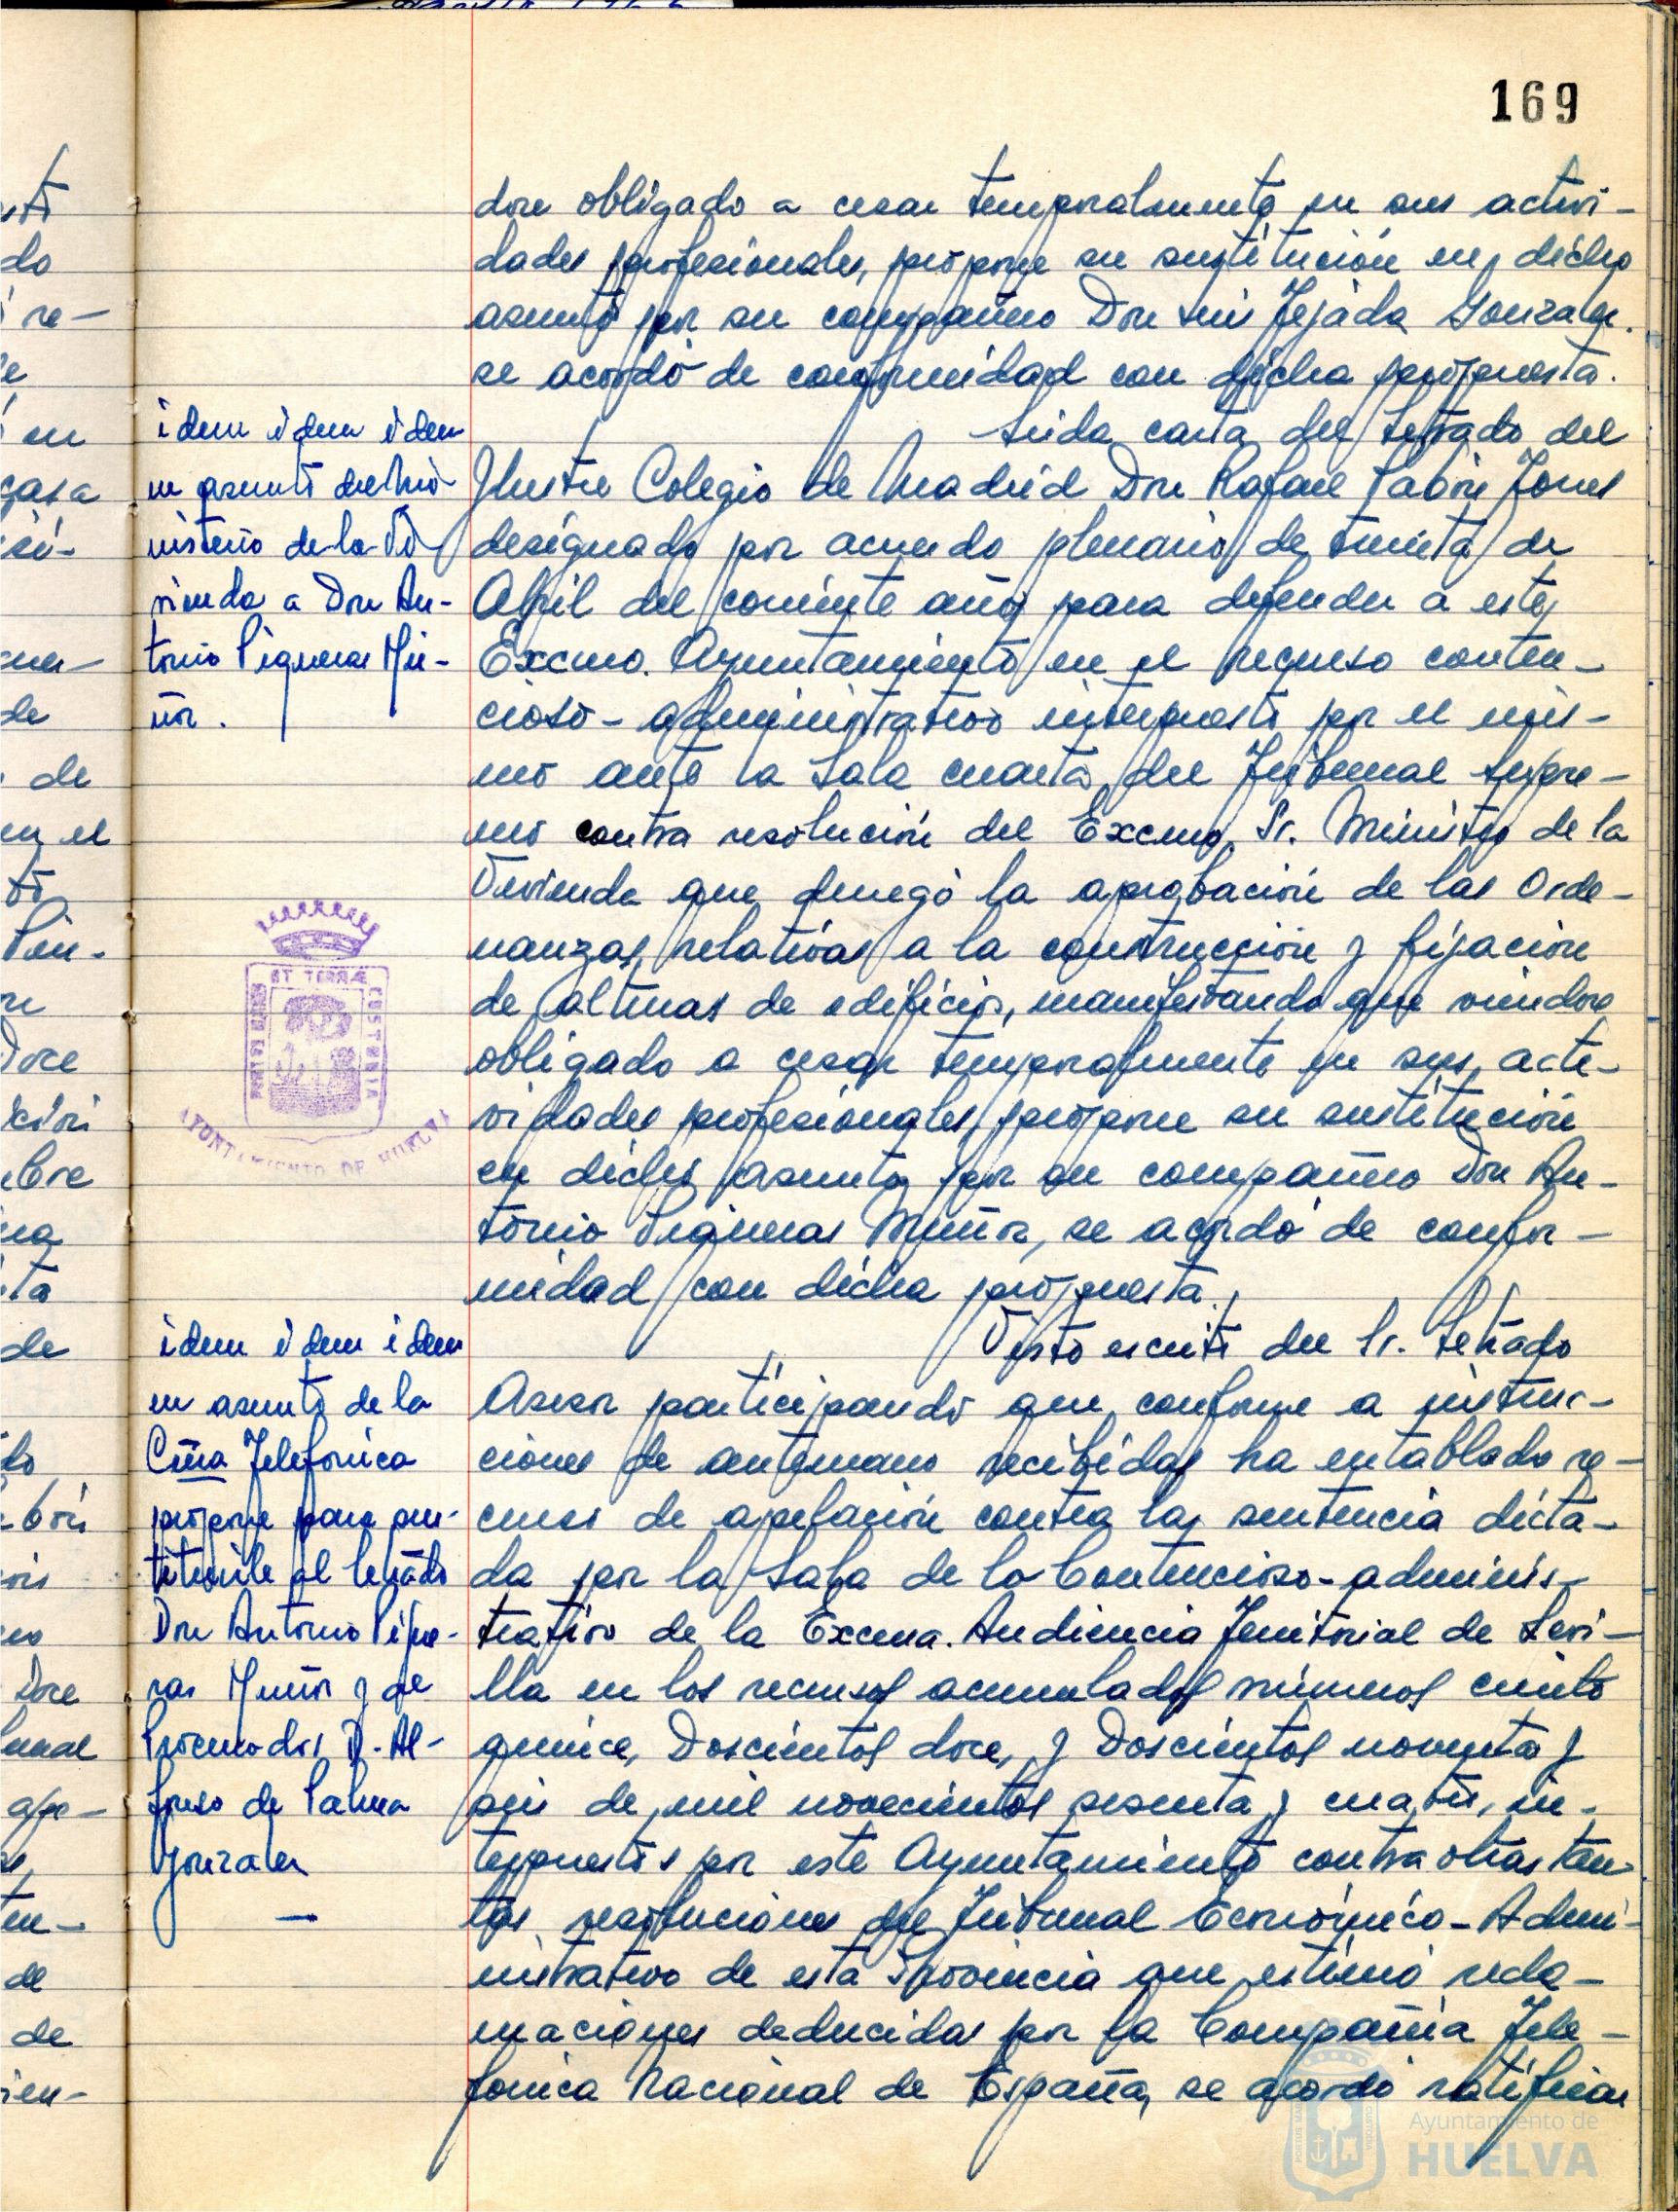 169
dose obligado a cesar temporalmente en sus activi-
dades profesionales, propone su sustitución en dicho
asunto por su compañero Don Luis Tejada Gonzalez.
se acordó de conformidad con dicha propuesta.
Leida carta del Letrado del
Ilustre Colegio de Madrid Don Rafael Pabón Torres
designado por acuerdo plenario de treinta de
Abril del corriente año para defender a este
Excmo. Ayuntamiento en el recurso conten-
cioso-administrativo interpuesto por el mis-
mo ante la Sala cuarta del Tribunal Supre-
mo contra resolución del Excmo. Sr. Ministro de la
Vivienda que denegó la aprobación de las Orde-
nanzas relativas a la construcción y fijación
de alturas de edificios, manifestando que viendose
obligado a cesar temporalmente en sus acti-
vidades profesionales, propone su sustitución
en dicho asunto por su compañero Don An-
tonio Piqueras Muñoz, se acordó de confor-
midad con dicha propuesta.
Visto escrito del Sr. Letrado
Asesor participando que conforme a instruc-
ciones de antemano recibidas ha entablado re-
curso de apelación contra la sentencia dicta-
da por la Sala de lo Contencioso-adminis-
trativo de la Excma. Audiencia Territorial de Sevi-
lla en los recursos acumulados números ciento
quince, Doscientos doce, y Doscientos noventa y
seis de mil novecientos sesenta y cuatro, in-
terpuestos por este Ayuntamiento contra otras tan-
tas resoluciones del Tribunal Económico-Admi-
nistrativo de esta Provincia que estimó recla-
maciones deducidas por la Compañia Tele-
fonica Nacional de España, se acordó ratificar
idem idem idem
en asunto del Mi-
nisterio de la Vi-
vienda a Don An-
tonio Piqueras Mu-
ñoz.
PORTUS MARIS
ET TERRÆ
CUSTODIA
AYUNTAMIENTO DE HUELVA
idem idem idem
en asunto de la
Cñia Telefonica
propone para sus-
tituirle al letrado
Don Antonio Pique-
ras Muñoz y de
Procurador D. Al-
fonso de Palma
Gonzalez
Ayuntamiento de
HUELVA